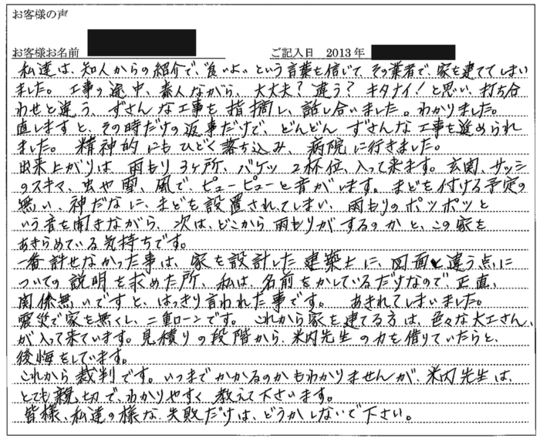 お客様の声
お客様お名前 ご記入日 2013年
私達は、知人からの紹介で、"良いよ"という言葉を信じて、その業者で、家を建ててしまい
ました。工事の途中、素人ながら、大丈夫?違う?キタナイ!と思い、打ち合
わせと違う、ずさんな工事を指摘し、話し合いました。わかりました。
直しますと、その時だけの返事だけで、どんどんずさんな工事を進められ
ました。精神的にもひどく落ち込み、病院に行きました。
出来上がりは雨もり3ヶ所、バケツ2杯位、入って来ます。玄関、サッシ
のスキマ、虫や雨、風で、ピューピューと音がします。まどを付ける予定の
無い、神だなに、まどを設置されてしまい、雨もりのポッポッと
いう音を聞きながら、次は、どこから雨もりがするのかと、この家を
あきらめている気持ちです。
一番許せなかった事は、家を設計した建築士に、図面と違う点に
ついての説明を求めた所、私は、名前をかしているだけなので正直、
関係無いですと、はっきり言われた事です。あきれてしまいました。
震災で家を無くし、二重ローンです。これから家を建てる方は、色々な大工さん
が入って来ています。見積りの段階から、米内先生の力を借りていたらと、
後悔をしています。
これから裁判です。いつまでかかるのかもわかりませんが、米内先生は、
とても親切で、わかりやすく教えて下さいます。
皆様、私達の様な失敗だけは、どうかしないで下さい。